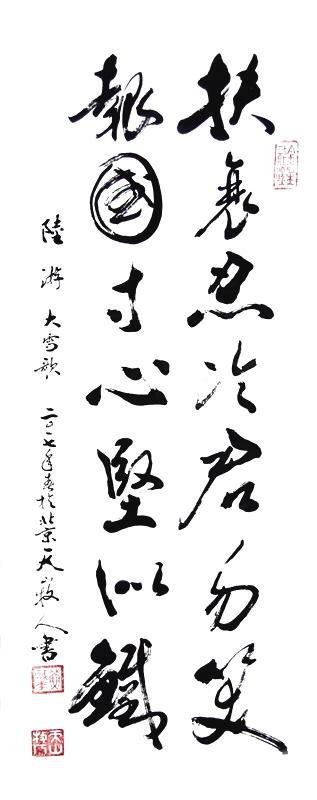 扶衰忍冷君勿笑
報國寸心堅似鐵
陸游 大雪歌 二〇一七年春於北京 人書